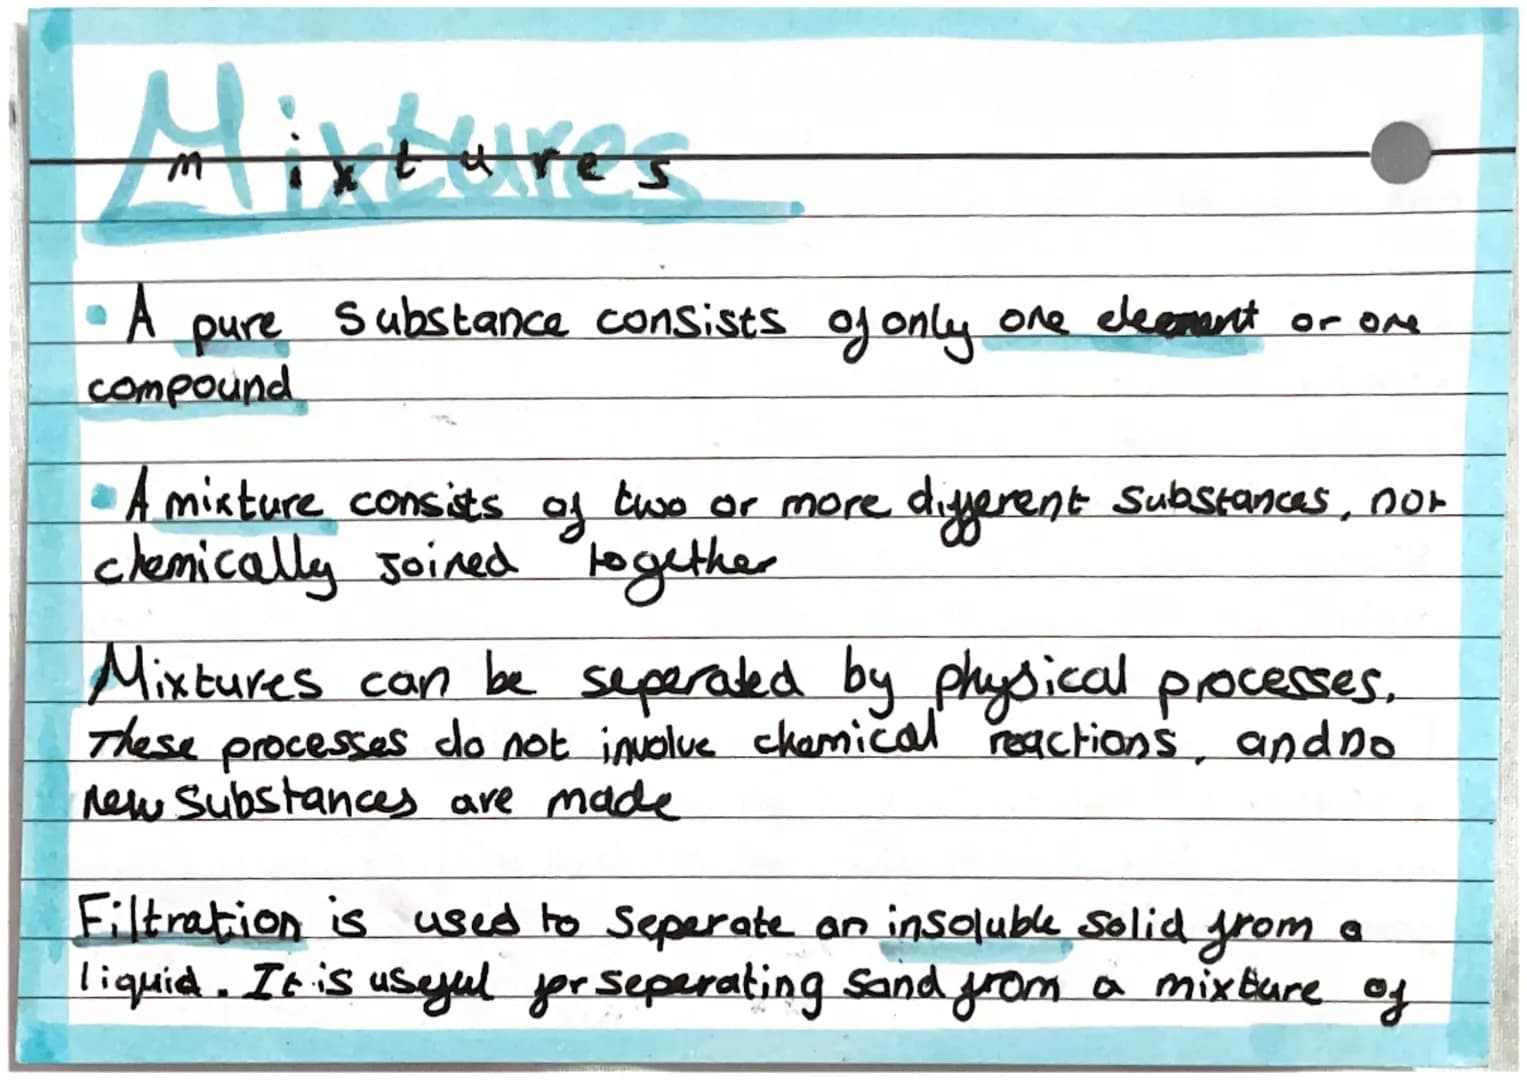 Mixtures
mixtures
• A pure substance consists of only one element or one
compound
• A mixture consists of two or more different substances, not
chemically joined together
Mixtures can be seperated by physical processes.
These processes do not involve chemical reactions, and no
new substances are made
Filtration is used to seperate an insoluble solid from a
liquid. It is useful for seperating sand from a mixture of